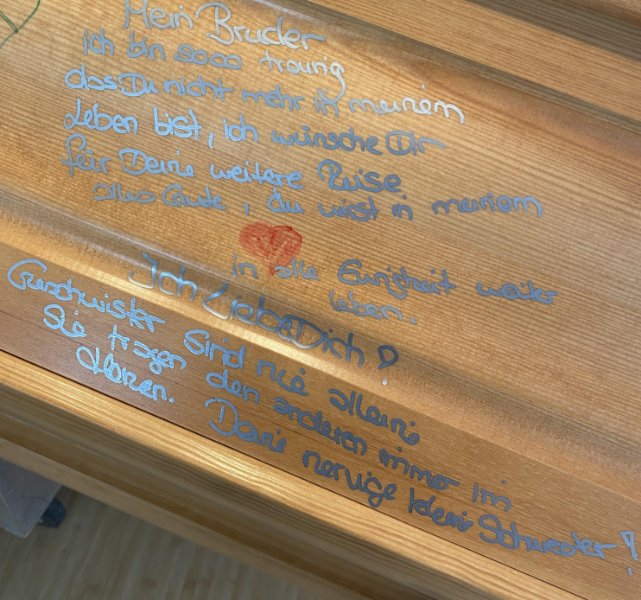 Mein Bruder
Ich bin sooo traurig
das Du nicht mehr in meinem
Leben bist, Ich wünsche Dir
für Deine weitere Reise
alles Gute, du wirst in meinem
in alle Ewigkeit weiter
leben.
Ich Liebe Dich!
Geschwister sind nie alleine
Sie tragen den anderen immer im
Herzen.
Deine nervige kleine Schwester!